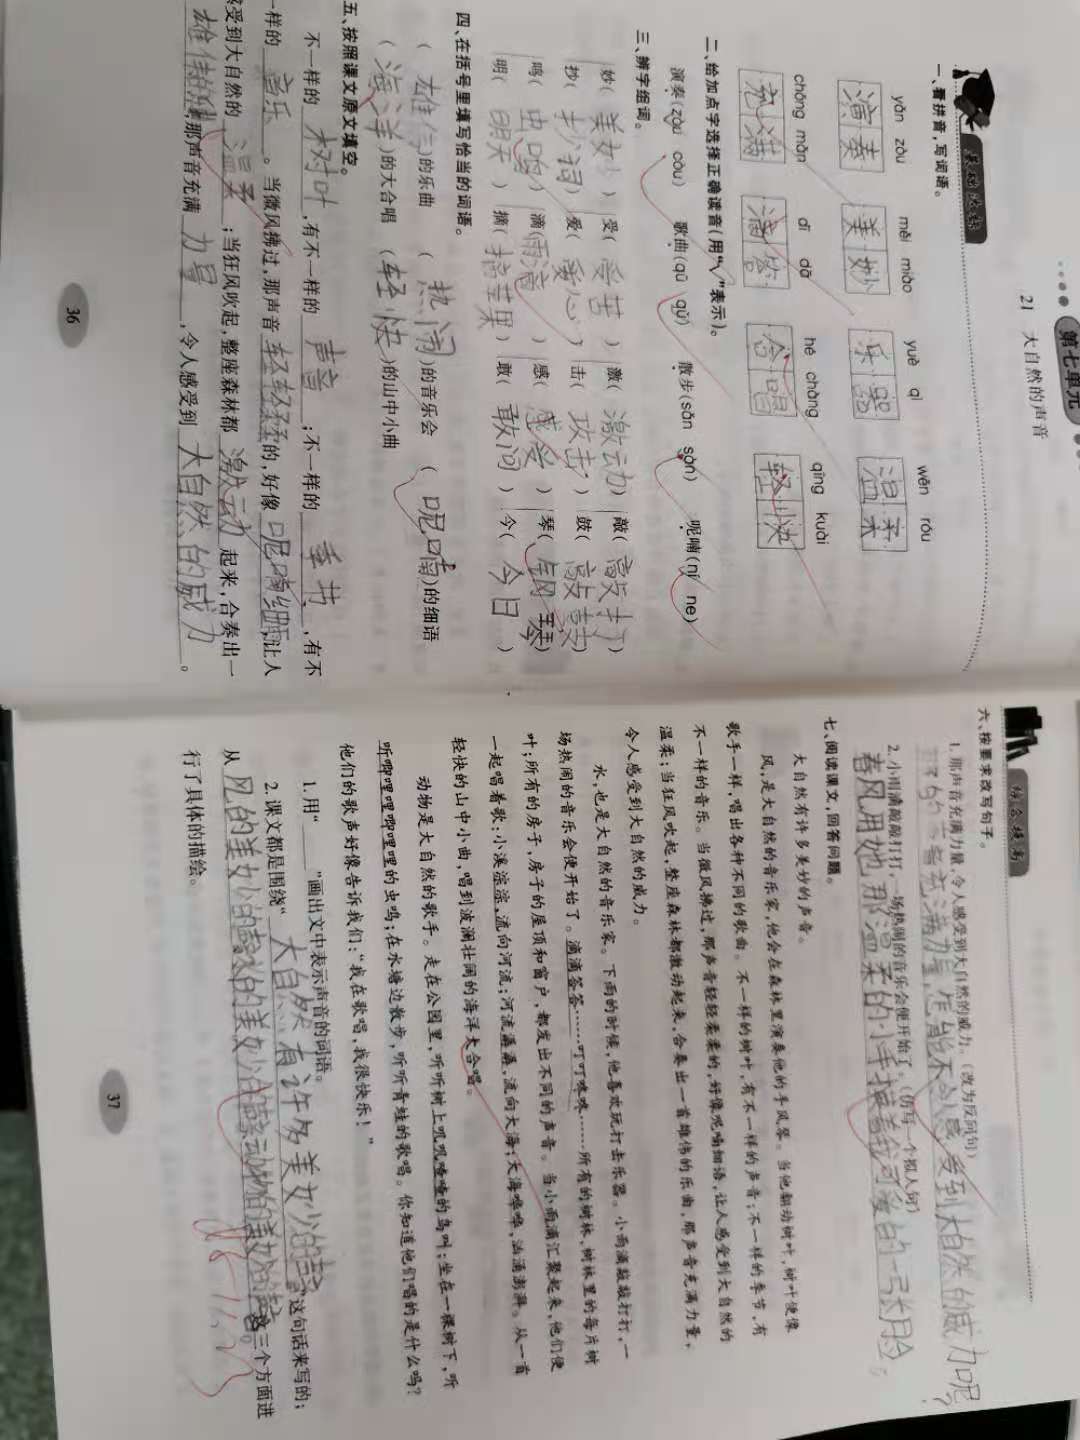 第七单元
21 大自然的声音
基础达标
一、看拼音,写词语。
yǎn zòu měi miào yuè qì wēn róu
演奏 美妙 乐器 温柔
chōng mǎn dī dā hé chàng qīng kuài
充满 滴答 合唱 轻快
二、给加点字选择正确读音(用“√”表示)。
演奏(zòu còu) 歌曲(qū qǔ) 散步(sǎn sàn) 呢喃(ní ne)
三、辨字组词。
妙(美妙) 受(受苦) 激(激动) 敲(敲打)
抄(抄词) 爱(爱心) 击(攻击) 鼓(敲鼓)
鸣(虫鸣) 滴(雨滴) 感(感受) 琴(钢琴)
明(明天) 摘(摘苹果) 敢(敢问) 今(今日)
四、在括号里填写恰当的词语。
(雄伟)的乐曲 (热闹)的音乐会 (呢喃)的细语
(海洋)的大合唱 (轻快)的山中小曲
五、按照课文原文填空。
不一样的 树叶 ,有不一样的 声音 ;不一样的 季节 ,有不
一样的 音乐 。当微风拂过,那声音 轻轻柔柔 的,好像 呢喃细语 ,让人
感受到大自然的 温柔 ;当狂风吹起,整座森林都 激动 起来,合奏出一
雄伟的乐曲 ,那声音充满 力量 ,令人感受到 大自然的威力 。
36
综合提高
六、按要求改写句子。
1. 那声音充满力量,令人感受到大自然的威力。(改为反问句)
那声音充满力量,怎能不令人感受到大自然的威力呢?
2. 小雨滴敲敲打打,一场热闹的音乐会便开始了。(仿写一个拟人句)
春风用她那温柔的小手摸着我可爱的一张脸。
七、阅读课文,回答问题。
大自然有许多美妙的声音。
风,是大自然的音乐家,他会在森林里演奏他的手风琴。当他翻动树叶,树叶便像
歌手一样,唱出各种不同的歌曲。不一样的树叶,有不一样的声音;不一样的季节,有
不一样的音乐。当微风拂过,那声音轻轻柔柔的,好像呢喃细语,让人感受到大自然的
温柔;当狂风吹起,整座森林都激动起来,合奏出一首雄伟的乐曲,那声音充满力量,
令人感受到大自然的威力。
水,也是大自然的音乐家。下雨的时候,他喜欢玩打击乐器。小雨滴敲敲打打,一
场热闹的音乐会便开始了。滴滴答答……叮叮咚咚……所有的树林,树林里的每片树
叶;所有的房子,房子的屋顶和窗户,都发出不同的声音。当小雨滴汇聚起来,他们便
一起唱着歌:小溪淙淙,流向河流;河流潺潺,流向大海;大海哗哗,汹涌澎湃。从一首
轻快的山中小曲,唱到波澜壮阔的海洋大合唱。
动物是大自然的歌手。走在公园里,听听树上叽叽喳喳的鸟叫;坐在一棵树下,听
听唧哩哩唧哩哩的虫鸣;在水塘边散步,听听青蛙的歌唱。你知道他们唱的是什么吗?
他们的歌声好像告诉我们:“我在歌唱,我很快乐!”
1. 用“____”画出文中表示声音的词语。
2. 课文都是围绕“ 大自然有许多美妙的声音 ”这句话来写的;
从 风的美妙的声音、水的美妙的声音、动物的美妙的声音 三个方面进
行了具体的描绘。
37